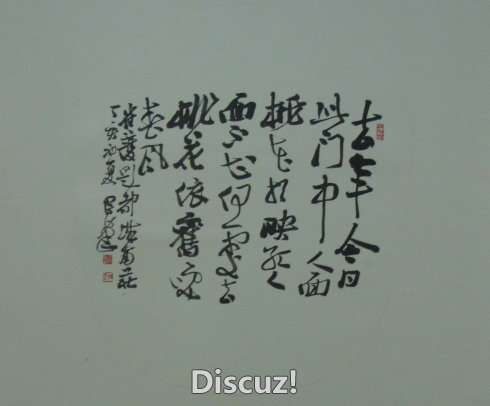 去年今日
此门中人面
桃花相映红人
面不知何處去
桃花依舊笑
春风
崔護题都城南莊
丁亥初夏
Discuz!